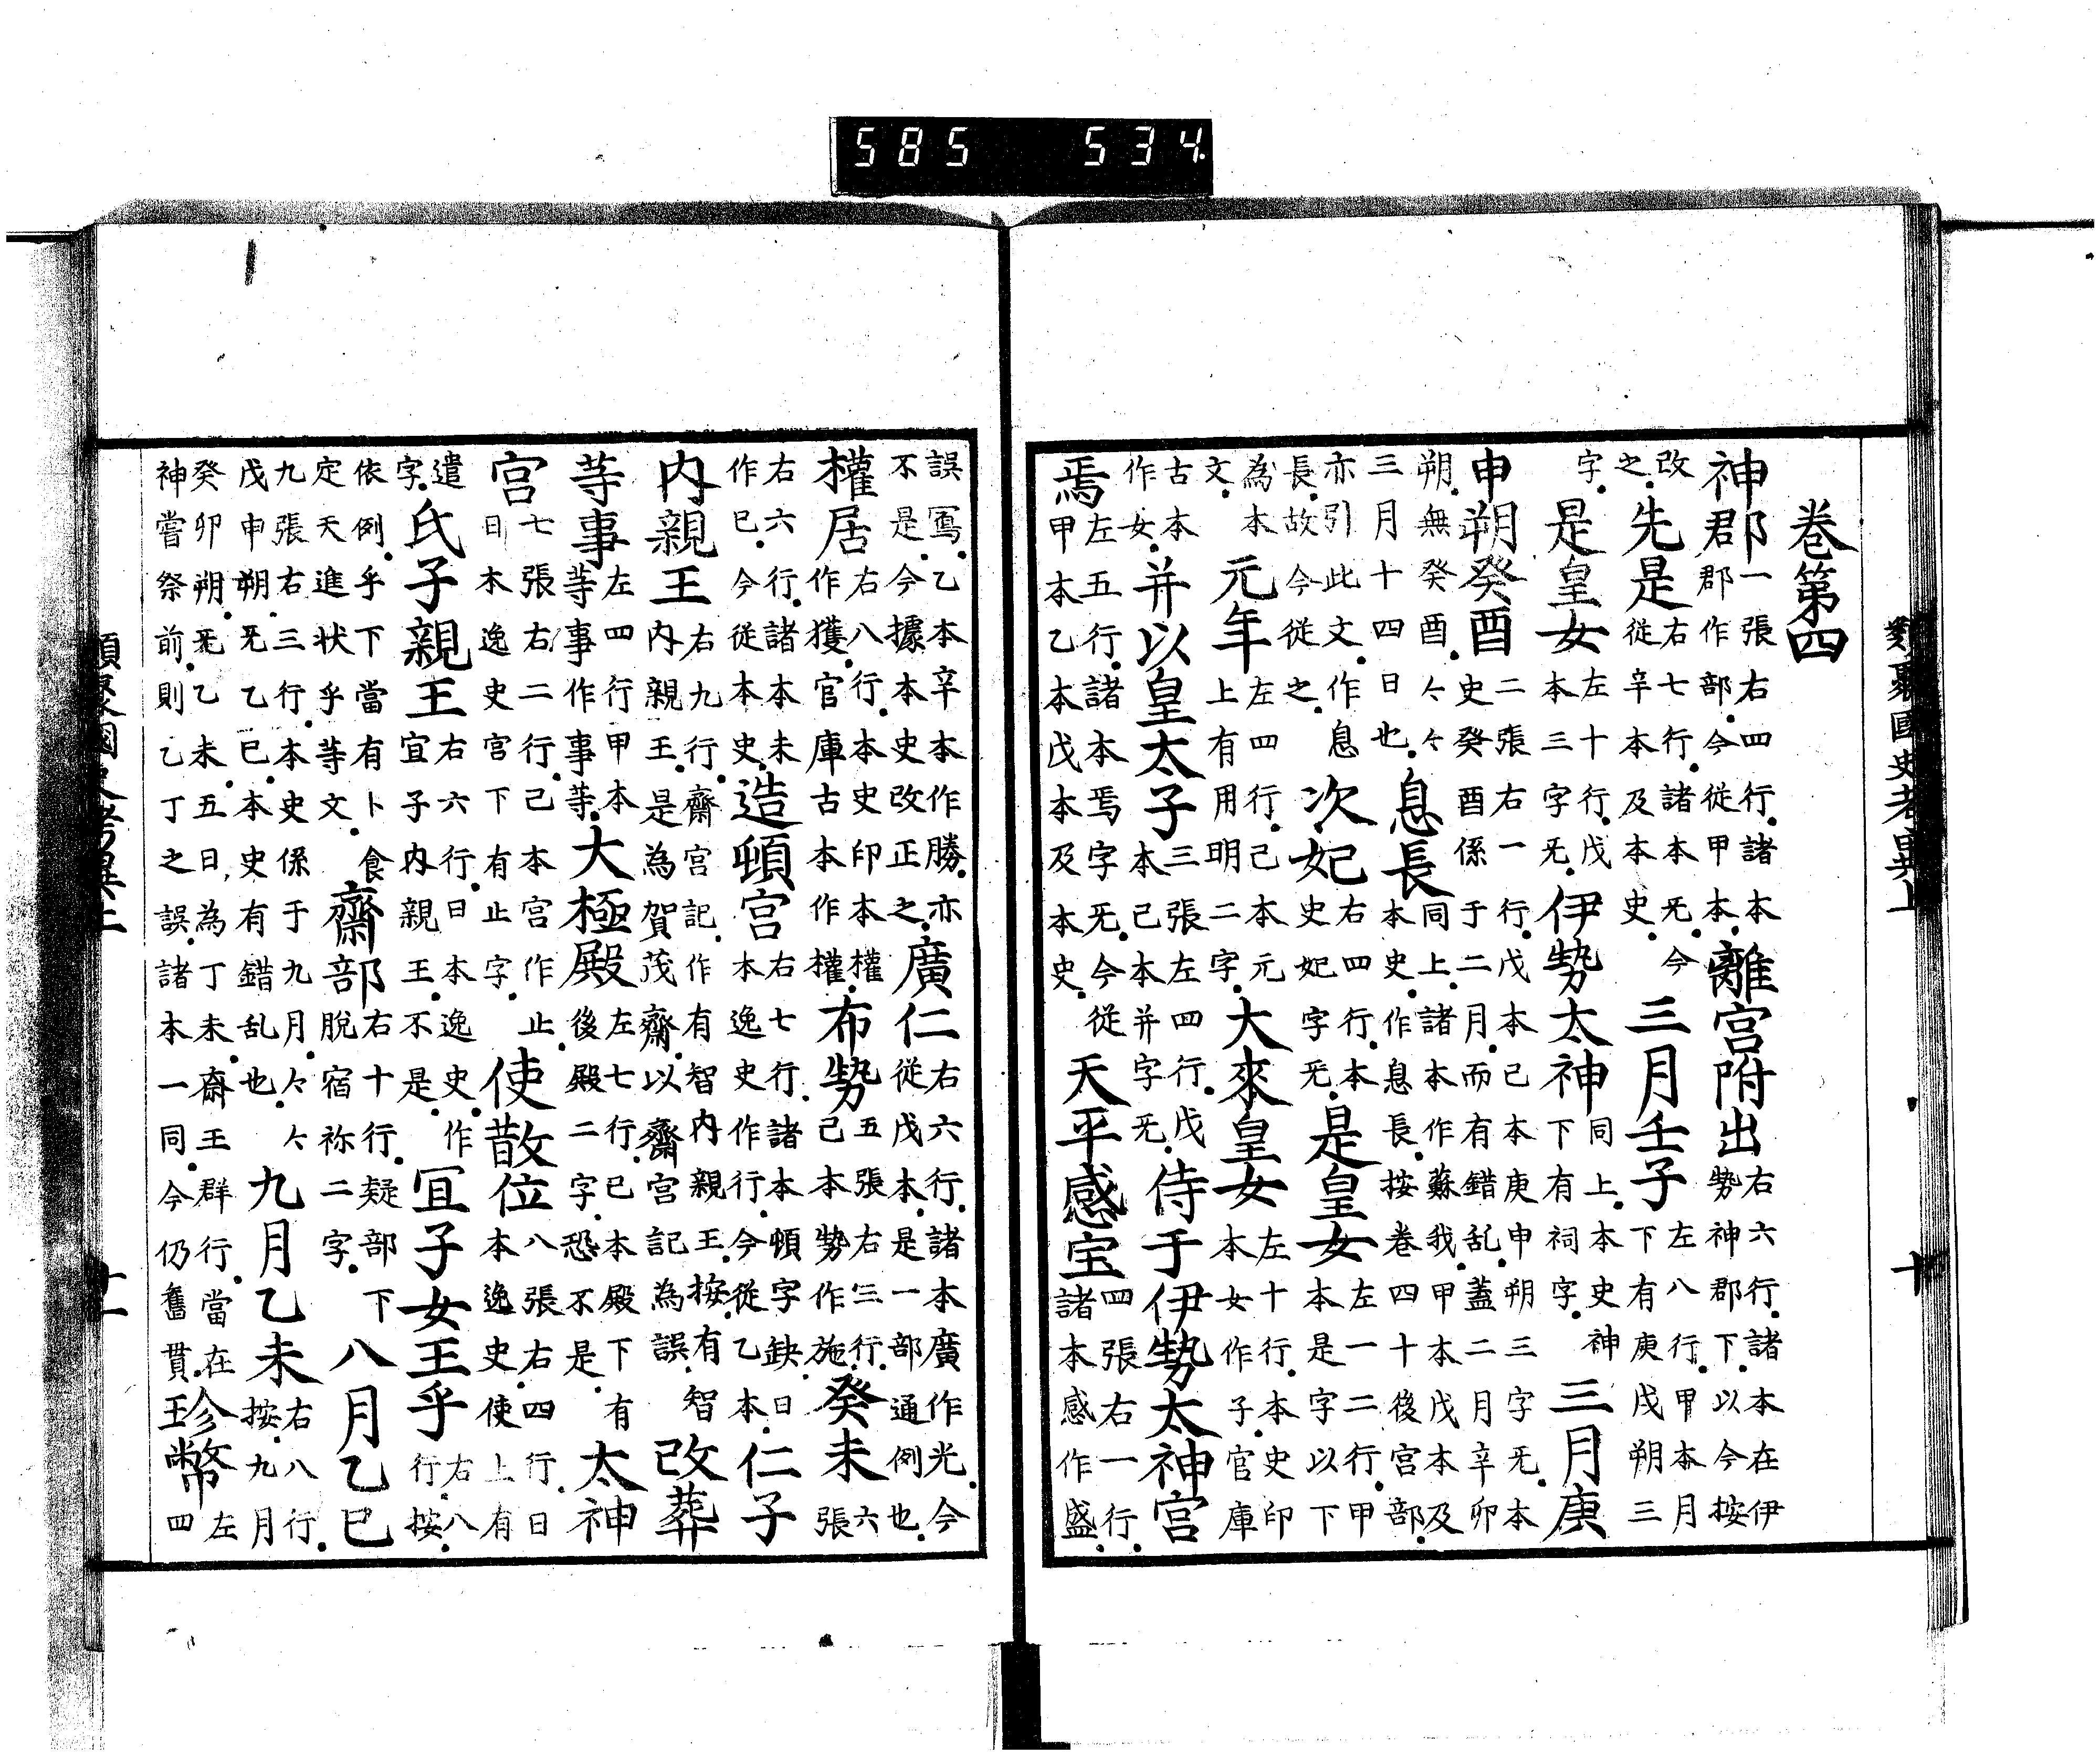 類聚國史考異上
十
巻第四
神郡一張右四行。諸本郡作部。今從甲本。離宮附出右六行。諸本在伊勢神郡下。以今按
改之。先是右七行。諸本旡。今從辛本及本史。三月壬子左八行。甲本月下有庚戌朔三
字。是皇女左十行。戊本三字旡。伊勢太神同上。本史神下有祠字。三月庚
申朔癸酉二張右一行。戊本己本庚申朔三字旡。本史癸酉係于二月。而有錯乱。蓋二月辛卯
朔。無癸酉。々々三月十四日也。息長同上。諸本作蘇我。甲本戊本及本史。作息長。按巻四十後宮部。
亦引此文。作息長。故今從之。次妃右四行。本史妃字旡。是皇女左一二行。甲本是字以下
為本文。元年左四行。己本元上有用明二字。大來皇女左十行。本史印本女作子。官庫
古本作女。并以皇太子三張左四行。戊本己本并字旡。侍于伊勢太神宮
焉左五行。諸本焉字旡。今從甲本乙本戊本及本史。天平感宝四張右一行。諸本感作盛。
誤寫。乙本辛本作勝。亦不是。今據本史改正之。廣仁右六行。諸本廣作光。今從戊本。是一部通例也。
權居右八行。本史印本權作獲。官庫古本作權。布勢五張右三行。己本勢作施。癸未六張
右六行。諸本未作巳。今從本史。造頓宮右七行。諸本頓字缺。日本逸史作行。今從乙本。仁子
内親王右九行。齋宮記。作有智内親王。按有智内親王。是為賀茂齋。以齋宮記為誤。改葬
等事左四行。甲本等事作事等。大極殿左七行。已本殿下有後殿二字。恐不是。太神
宮七張右二行。己本宮作止。日本逸史宮下有止字。使散位八張右四行。日本逸史。使上有
遣字。氏子親王右六行。日本逸史。作宜子内親王。不是。宜子女王乎右八行按。
依例。乎下當有卜食定天進状乎等文。齋部右十行。疑部下脱宿祢二字。八月乙巳
九張右三行。本史係于九月。々々戊申朔。旡乙巳。本史有錯乱也。九月乙未右八行。按。九月
癸卯朔。旡乙未。五日為丁未。齋王群行。當在神嘗祭前。則乙丁之誤。諸本一同。今仍舊貫。珍幣左四
類聚國史考異上
十一
585 534.